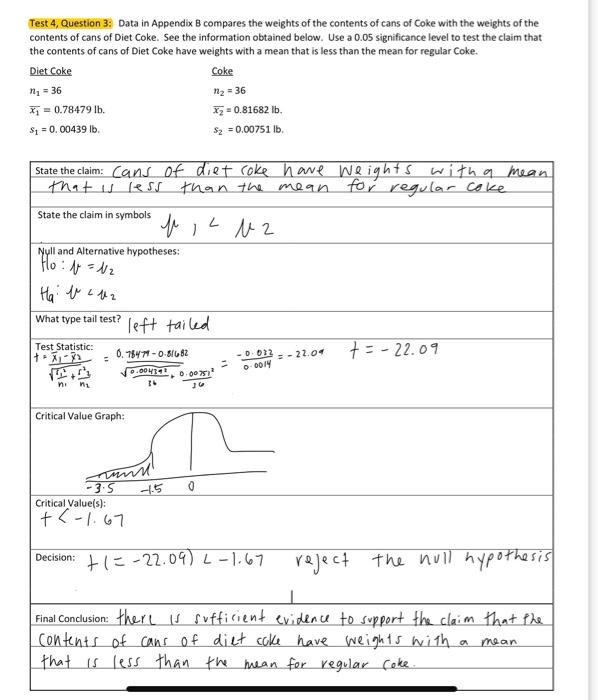 Test 4, Question 3: Data in Appendix B compares the weights of the contents of cans of Coke with the weights of the
contents of cans of Diet Coke. See the information obtained below. Use a 0.05 significance level to test the claim that
the contents of cans of Diet Coke have weights with a mean that is less than the mean for regular Coke.
Diet Coke Coke
n₁ = 36 n₂ = 36
x̄₁ = 0.78479 lb. x̄₂ = 0.81682 lb.
s₁ = 0. 00439 lb. s₂ = 0.00751 lb.
State the claim: Cans of diet coke have weights with a mean
that is less than the mean for regular coke
State the claim in symbols μ₁ < μ2
Null and Alternative hypotheses:
Ho : μ = μ₂
Ha : μ < μ₂
What type tail test? left tailed
Test Statistic:
t = x̄₁ - x̄₂ / √(s₁²/n₁ + s₂²/n₂) = 0.78479 - 0.81682 / √(0.00439²/36 + 0.00751²/36) = -0.032 / 0.0014 = -22.09 t = -22.09
Critical Value Graph:
-3.5 -1.5 0
Critical Value(s):
t < -1.67
Decision: t (= -22.09) < -1.67 reject the null hypothesis
Final Conclusion: there is sufficient evidence to support the claim that the
contents of cans of diet coke have weights with a mean
that is less than the mean for regular coke.